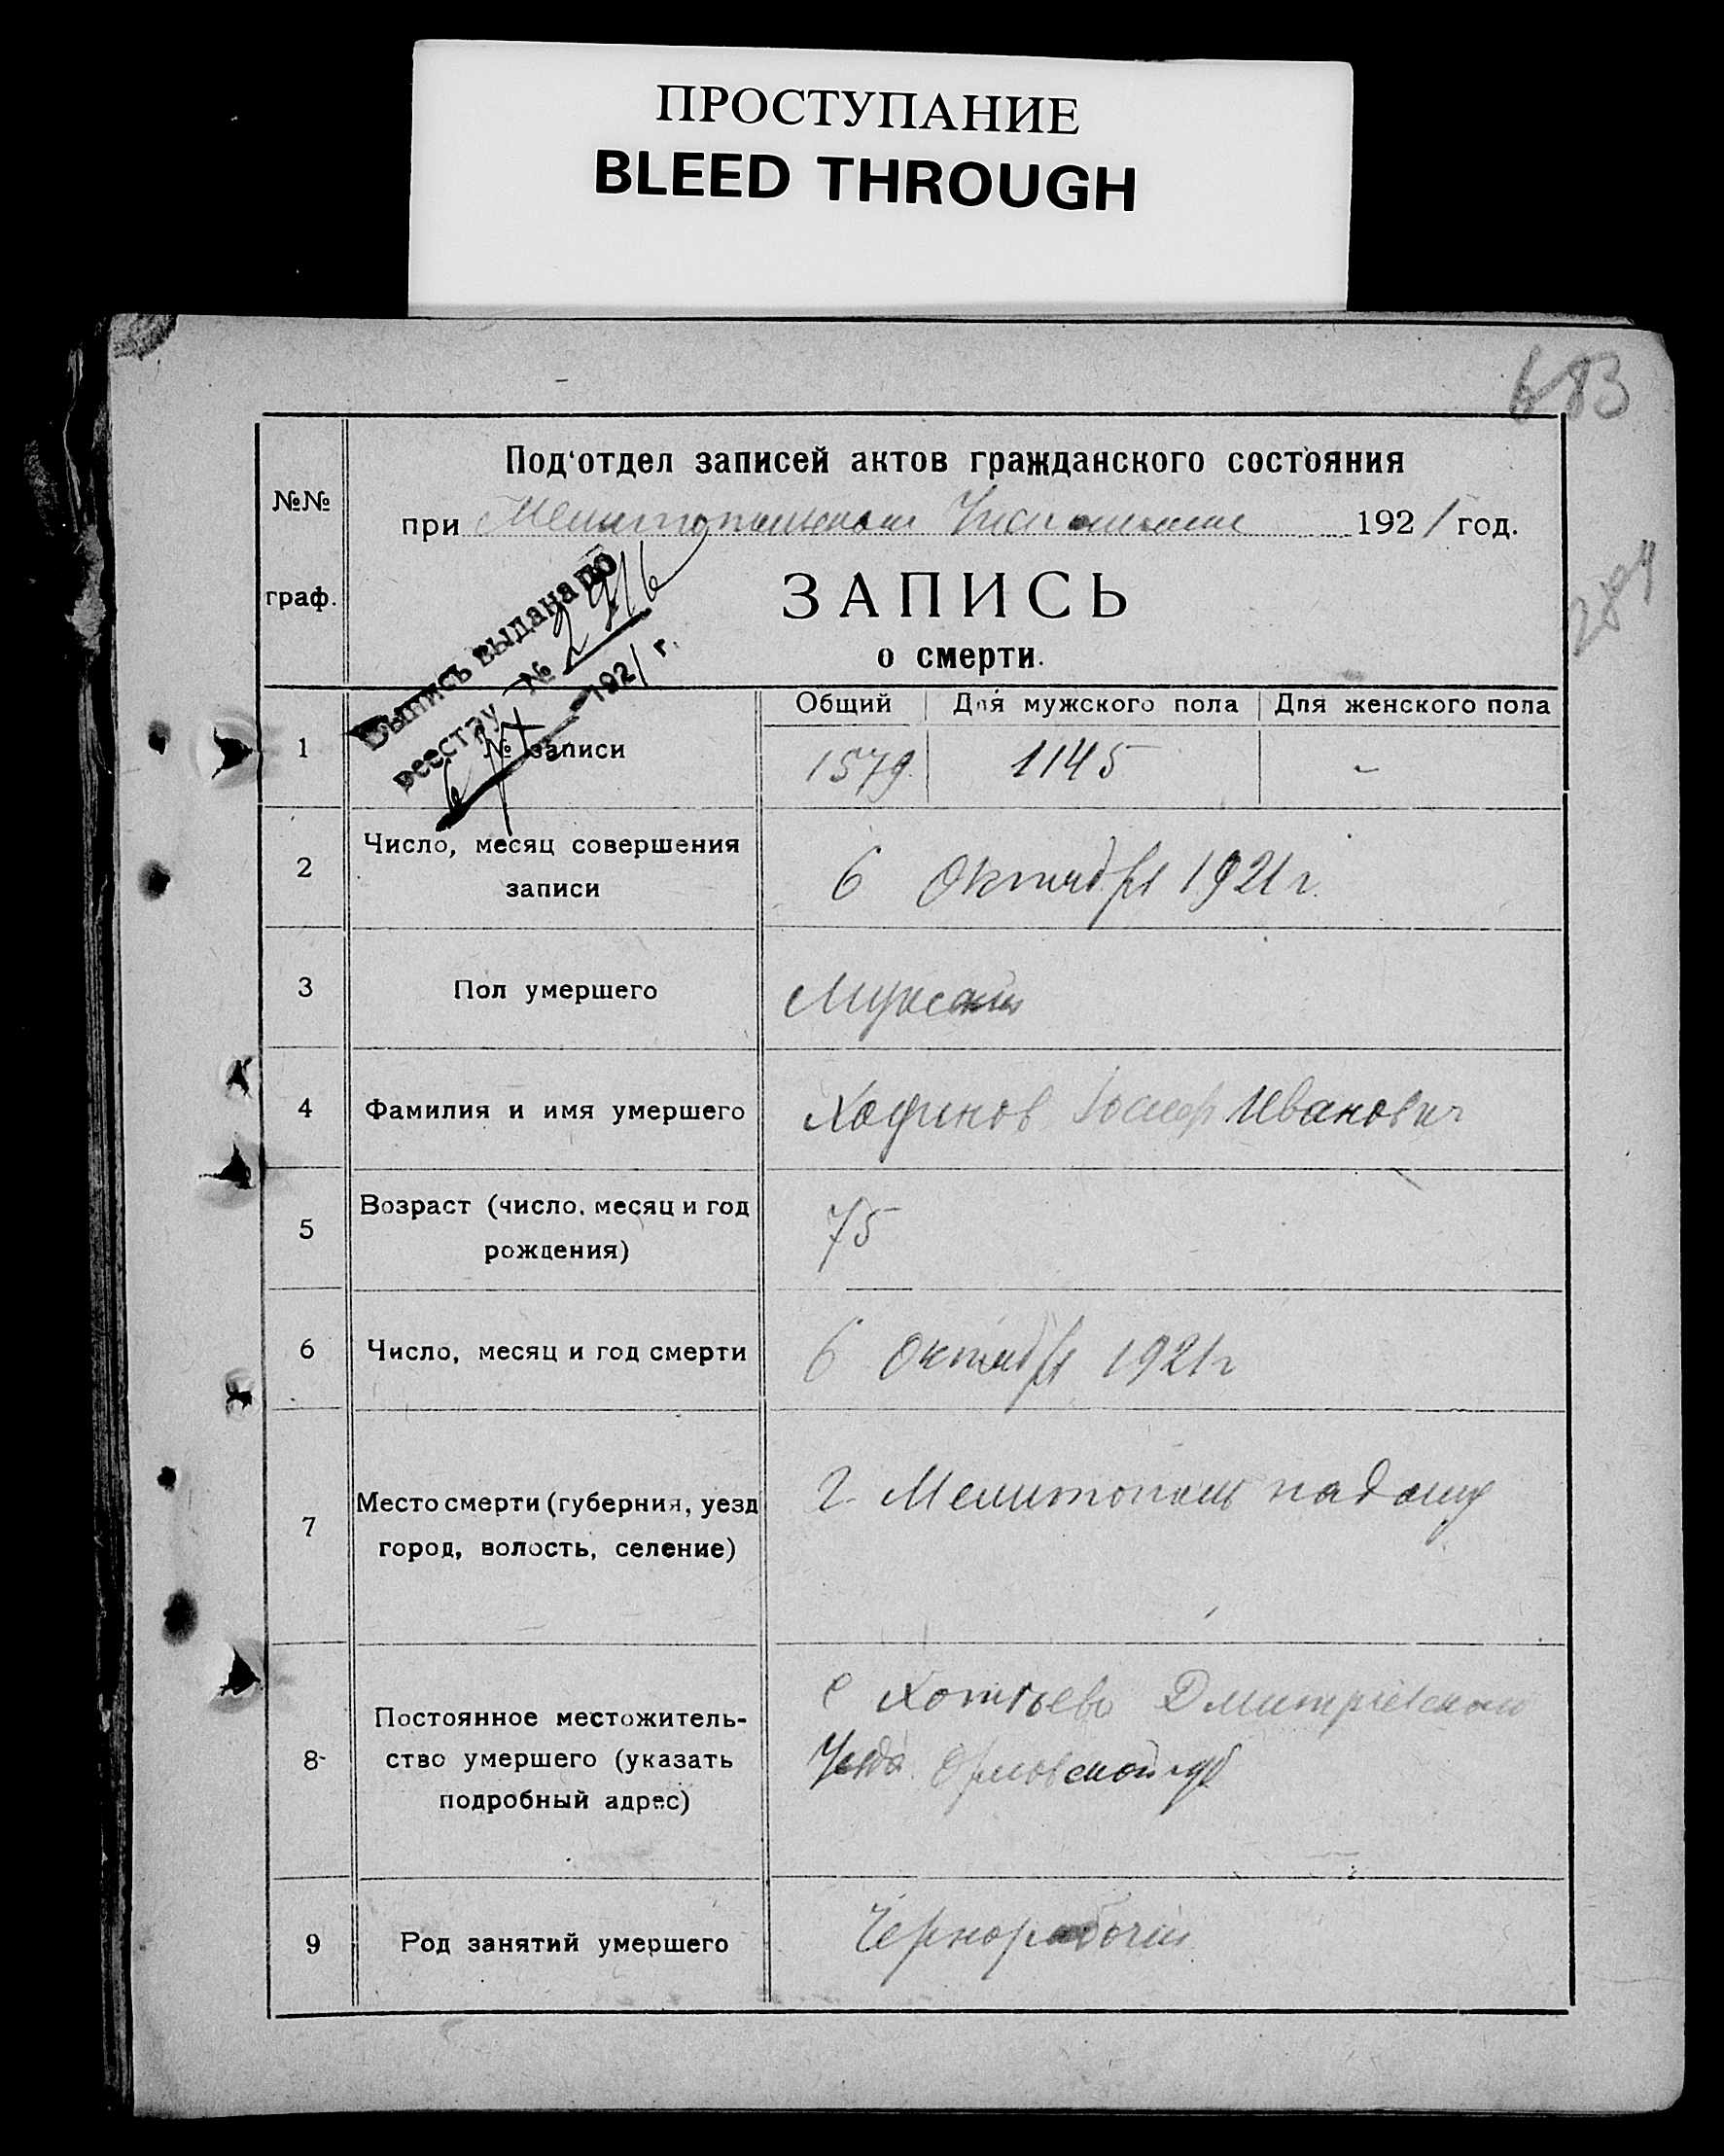 ПРОСТУПАНИЕ
BLEED THROUGH
683
№№
граф.
Под'отдел записей актов гражданского состояния
при Мелитопольском 1921 год.
284
ЗАПИСЬ
о смерти.
Выпись выдана по
реестру № 2916
6/X 1921 г.
Общий Для мужского пола Для женского пола
1 № записи 1579. 1145 -
2 Число, месяц совершения
записи
6 Октября 1921 г.
3 Пол умершего Мужской
4 Фамилия и имя умершего Хофинов Іосиф Иванович
5 Возраст (число, месяц и год
рождения)
75
6 Число, месяц и год смерти 6 Октября 1921 г
7 Место смерти (губерния, уезд
город, волость, селение)
г. Мелитополь на дому
8 Постоянное местожитель-
ство умершего (указать
подробный адрес)
с Хотьево Дмитріевского
Уезда Орловской губ
9 Род занятий умершего Чернорабочий